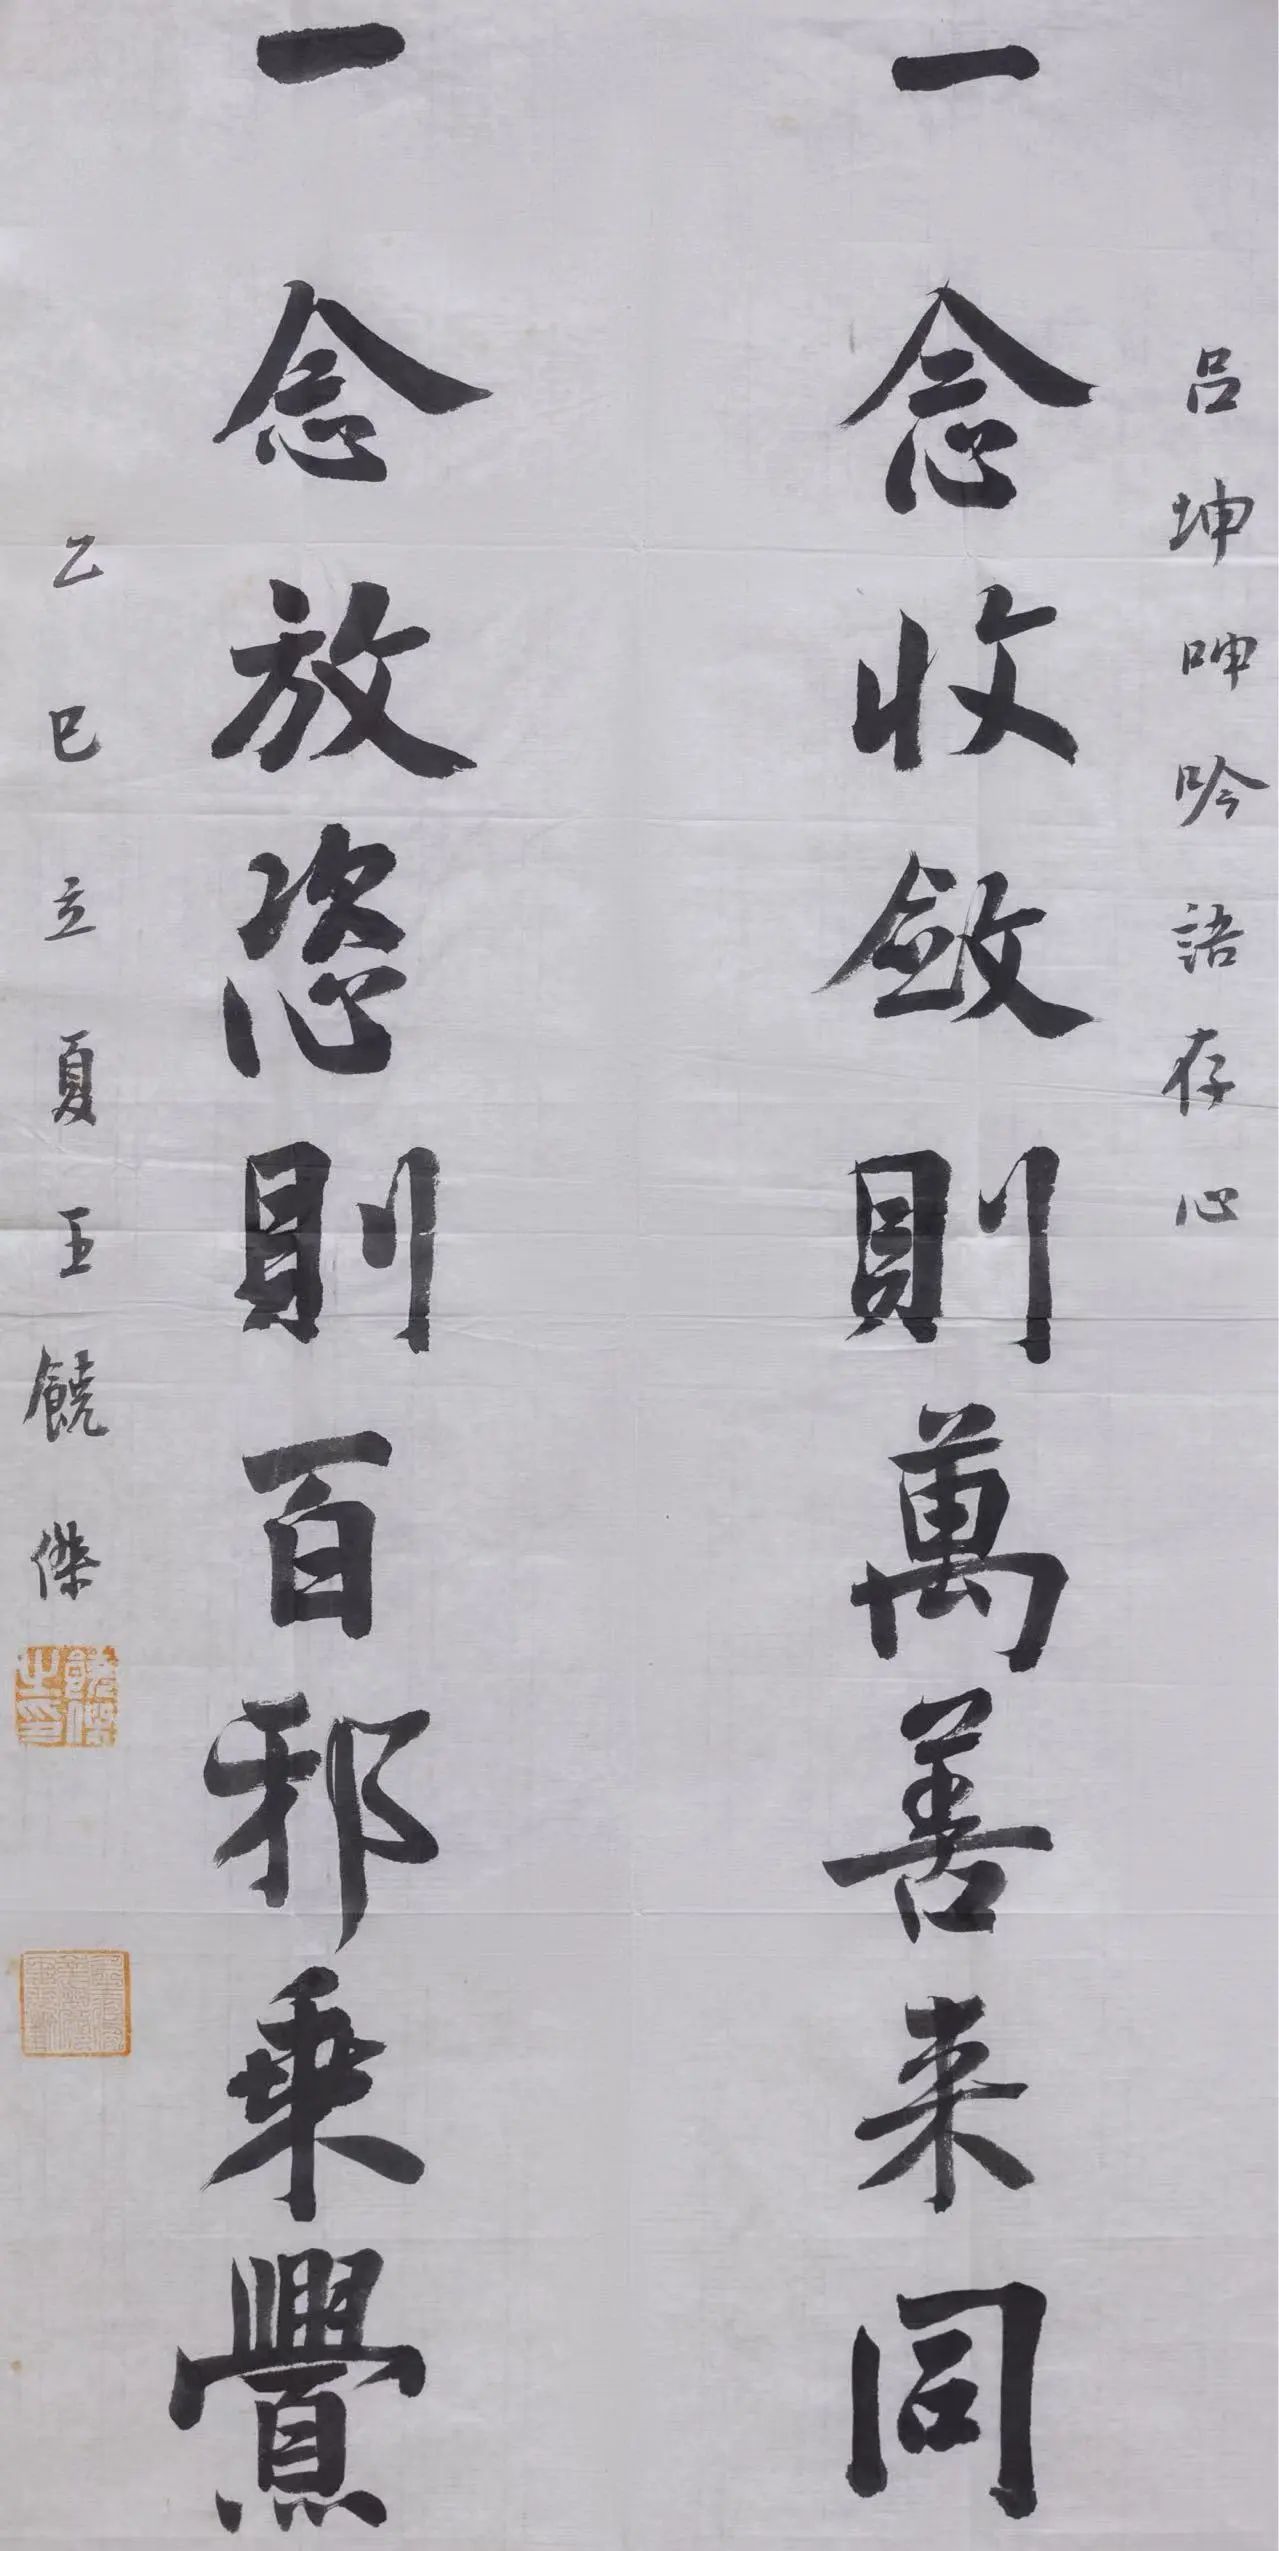 呂坤呻吟語存心
一念收敛則萬善来同
一念放恣則百邪乘釁
乙巳立夏王饒傑
饒傑之印